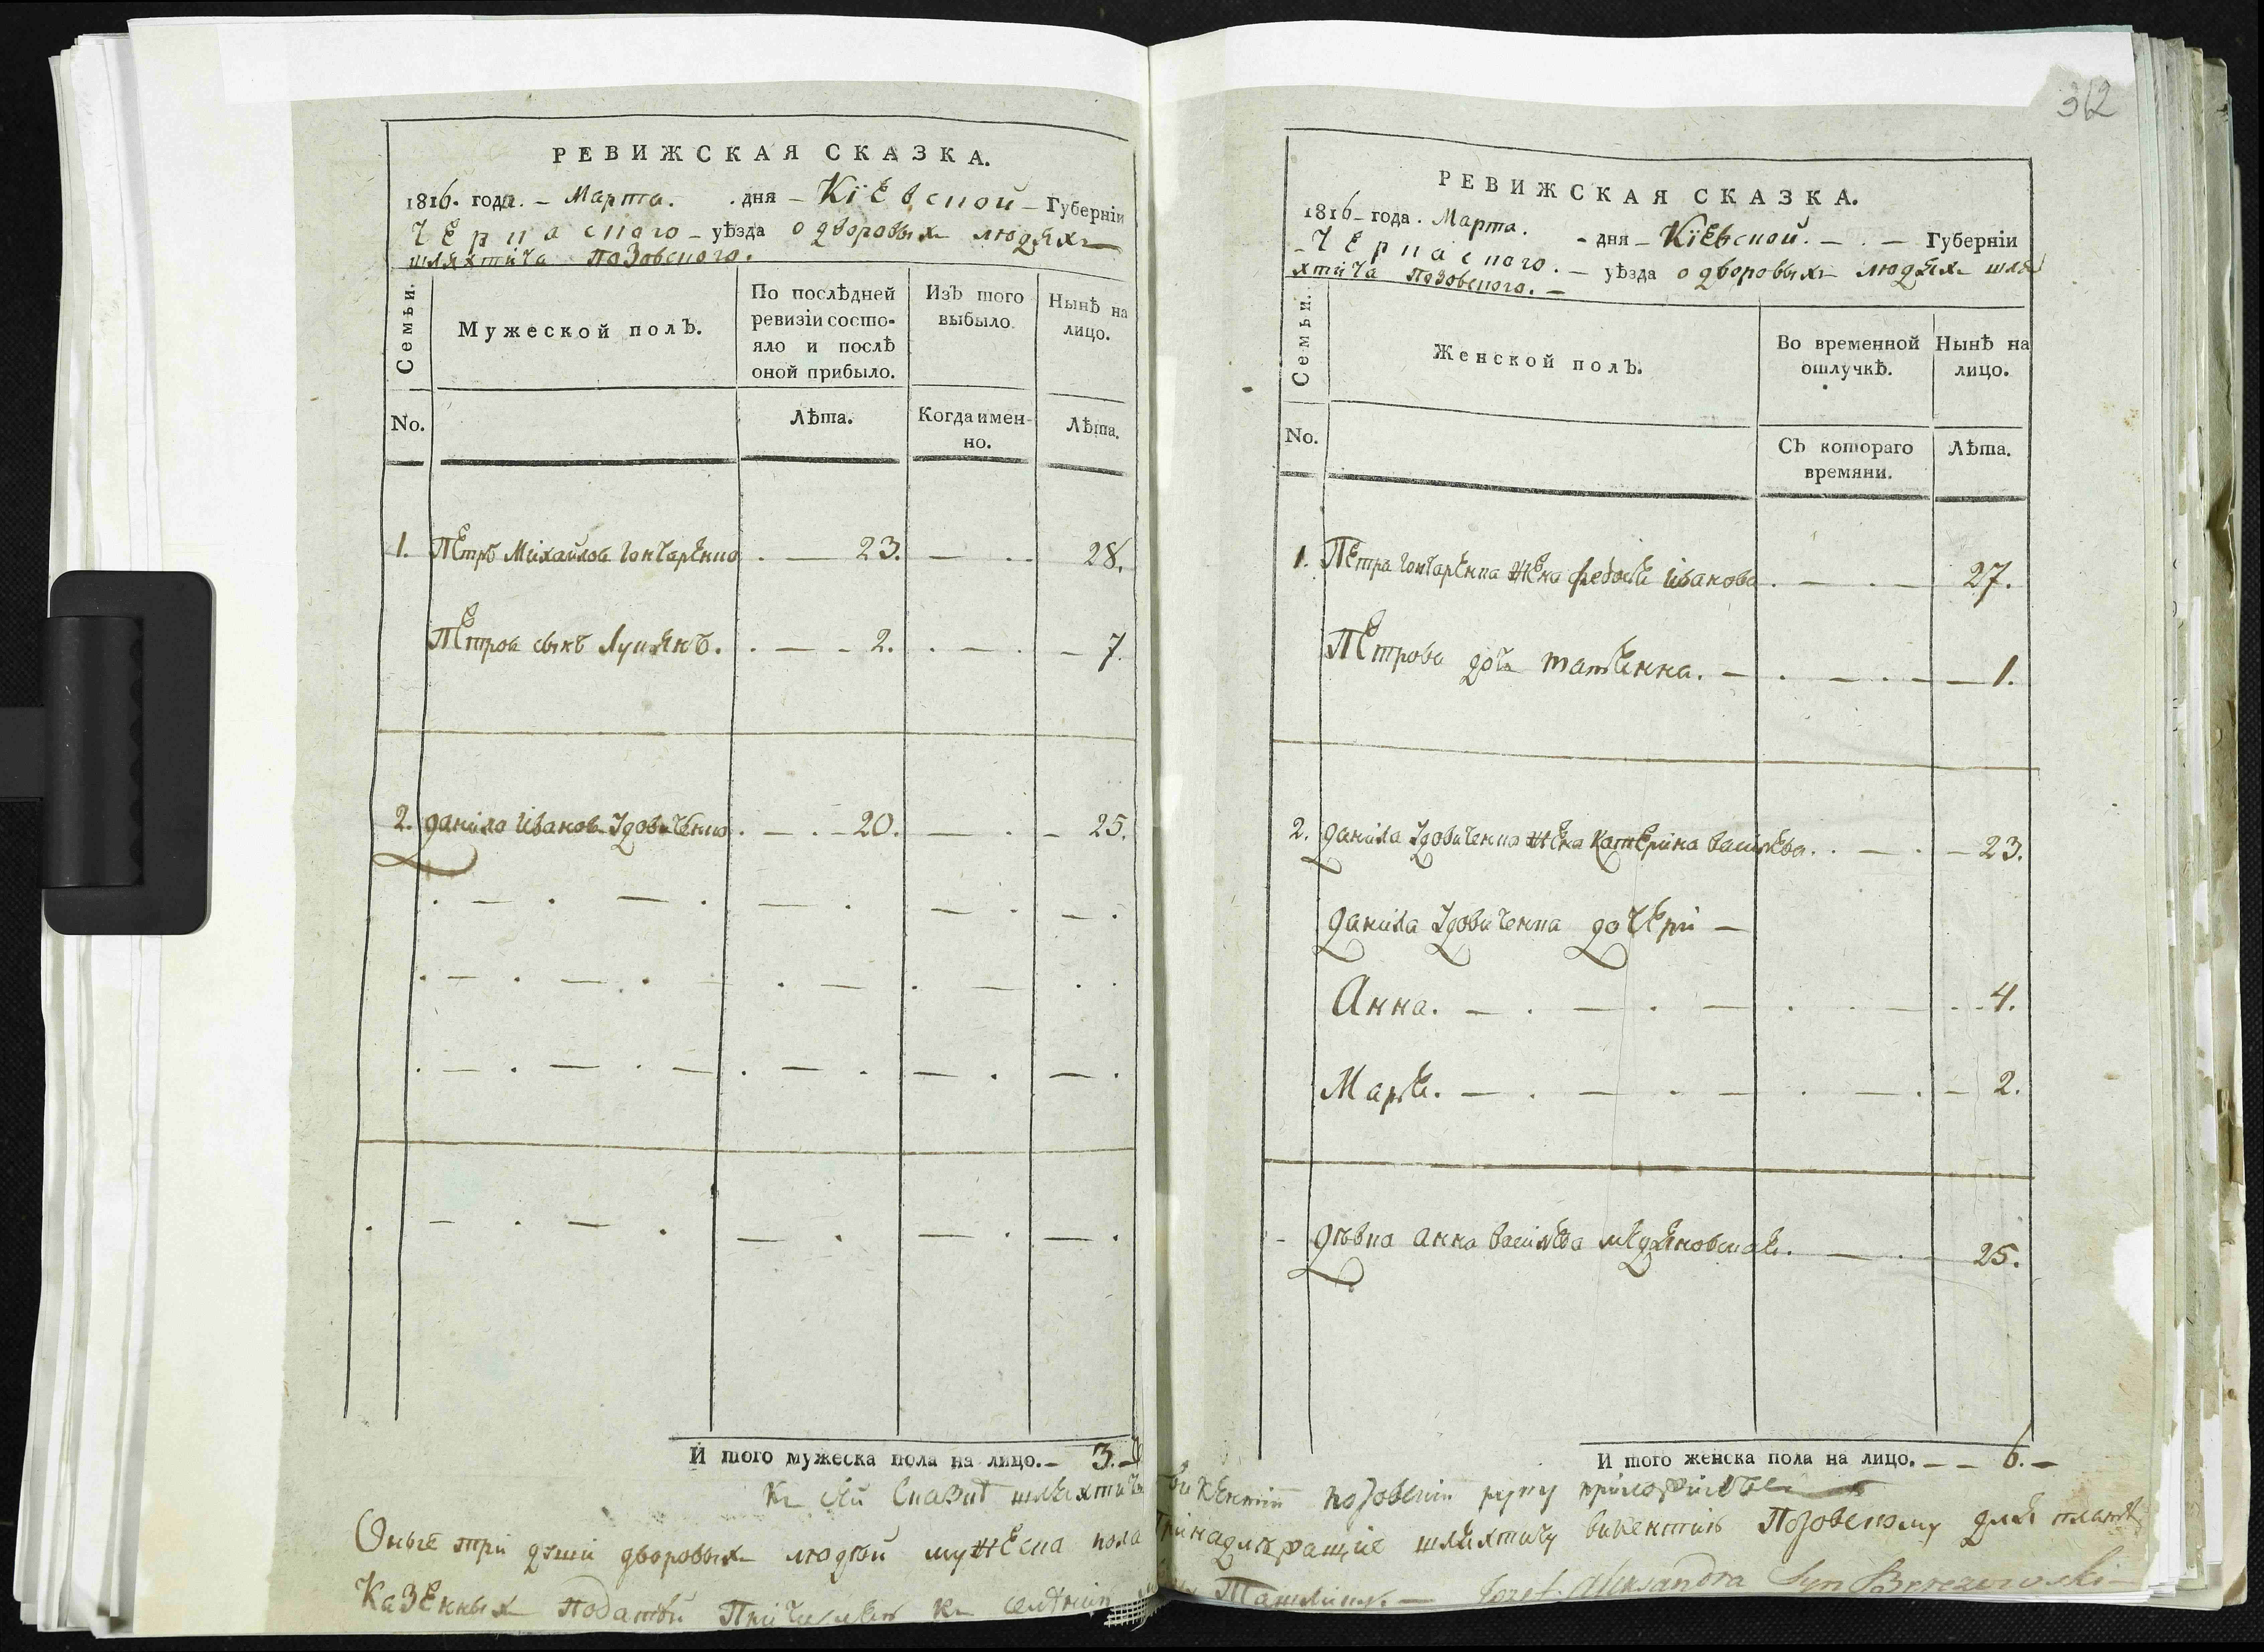 312
РЕВИЖСКАЯ СКАЗКА.
1816. года. – Марта. . дня – Кїевской – Губерніи
Черкаского – уѣзда о дворовыхъ людяхъ
шляхтича Позовского.
Семьи.
Мужеской полъ.
По послѣдней ревизіи состояло и послѣ оной прибыло.
Изъ того выбыло.
Нынѣ на лицо.
No.
Лѣта.
Когда именно.
Лѣта.
1. Петръ Михайловъ Гончаренко . — 23. — . . 28.
Петровъ сынъ Лукянъ. . — - 2. . — . – 7.
2. Данило Ивановъ Удовиченко . — . – 20. — . – 25.
И того мужеска пола на лицо. – 3. –
РЕВИЖСКАЯ СКАЗКА.
1816 – года . Марта. - дня – Кїевской. – . – Губерніи
- Черкаского. – уѣзда о дворовыхъ людяхъ шля
хтича Позовского. –
Семьи.
Женской полъ.
Во временной отлучкѣ.
Нынѣ на лицо.
No.
Съ котораго времяни.
Лѣта.
1. Петра Гончаренка жена Федося Иванова . — . — 27.
Петрова дочь татянна. — . — . — 1.
2. Данила Удовиченка жена Катерина Василева. . — . — 23.
Данила Удовиченка дочери —
Анна. — . — . — . . — . - 4.
Маря. — . — . — . — . – 2.
- Дѣвка Анна Василева . — . — 25.
И того женска пола на лицо. – – 6. –
Къ сей сказкѣ шляхтичъ Викентий Позовский руку приложилъ
Оные три души дворовыхъ людей мужеска пола принадлежащие шляхтичу Викентию Позовскому для платежа
Казенныхъ податей Причислены къ селению Ташлику. — Jozef Aleksandra Syn Brzozowski